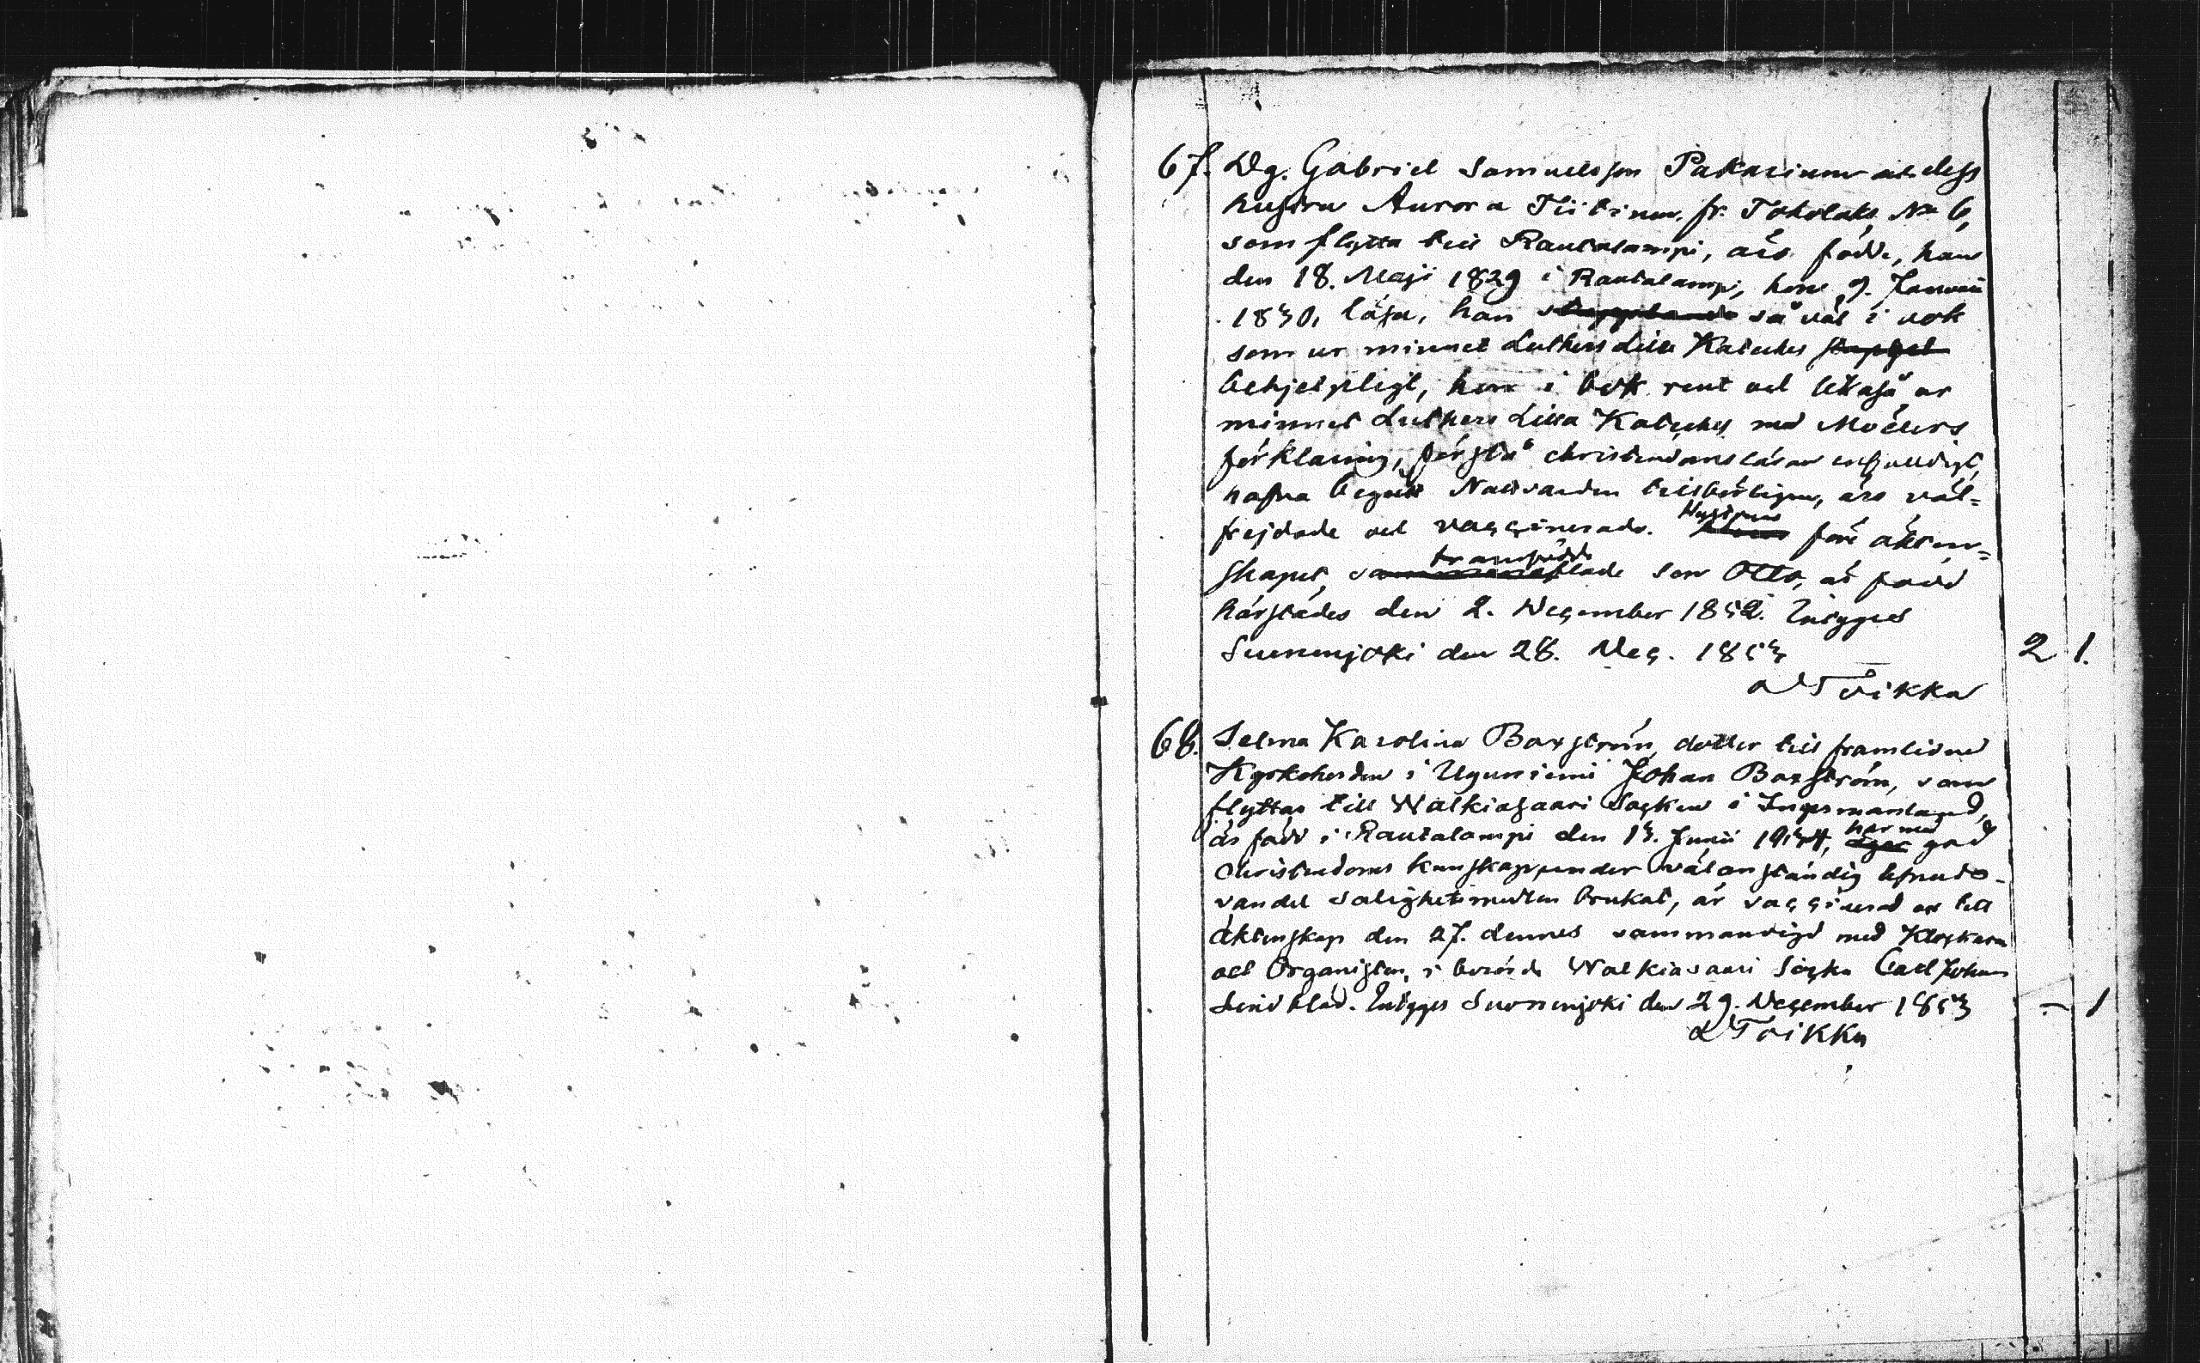 67. Dg. Gabriel Samuelsson Pakarinen och dess
hustru Aurora Tiitinen fr. Toholaks No 6,
som flytta till Rautalampi, äro födde, han
den 18. Maji 1829 i Rautalampi, hon 9. Januarii
1830, läsa, han så väl i bok
som ur minnet Luthers Lilla Kateches
behjelpligt, hon i bok rent och likaså ur
minnet Luthers Lilla Kateches med Möllers
förklaring, förstå christendomsläran enfaldigt,
hafva begått Nattvarden tillbörligen, äro väl=
frejdade och vaccinerade. Hustruns före äkten=
skapet, framfödde son Otto, är född
härstädes den 2. December 1852. Intygas
Suonenjoki den 28. Dec. 1853
Toikka
2 1.
68. Selma Karolina Boxström, dotter till framlidne
Kyrkoherden i Uguniemi Johan Boxström, som
flyttar till Walkiasaari Socken i Ingermanland,
är född i Rautalampi den 13. Junii 1834, har med god
Christendoms kunskap, under välanständig lefnads-
vandel salighetsmedlen brukat, är vaccinerad och till
äktenskap den 27. dennes sammanvigd med Klockaren
och Organisten i berörde Walkiasaari Socken Carl Johan
Lindblad. Intygas Suonenjoki den 29. December 1853
Toikka
- 1